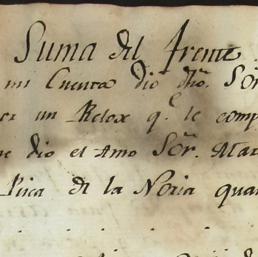 Suma del frente
mi Cuenta dio dho. Sor
un Relox qe. le comp
dio el Amo Sor. Mar
Rica de la Noria qua